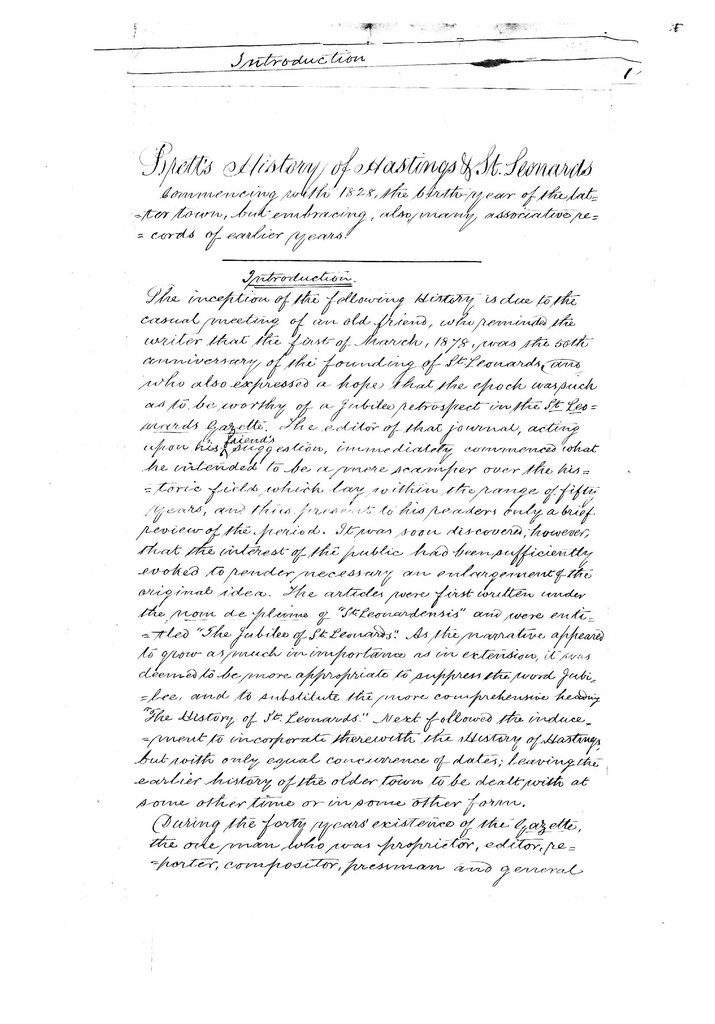 Introduction
1
Brett's History of Hastings & St. Leonards
Commencing with 1828, the birth-year of the lat-
-ter town, but embracing, also, many associative re-
-cords of earlier years.
Introduction.
The inception of the following History is due to the
casual meeting of an old friend, who reminded the
writer that the first of March, 1878, was the 50th
anniversary of the founding of St. Leonards, and
who also expressed a hope that the epoch was such
as to be worthy of a Jubilee retrospect in the St. Leo-
nards Gazette. The editor of that journal, acting
upon his friend's suggestion, immediately commenced what
he intended to be a mere scamper over the his-
-toric field which lay within the range of fifty
years, and thus present to his readers only a brief
review of the period. It was soon discovered, however,
that the interest of the public had been sufficiently
evoked to render necessary an enlargement of the
original idea. The articles were first written under
the nom de plume of "St. Leonardensis" and were enti-
-tled "The Jubilee of St. Leonards." As the narrative appeared
to grow as much in importance as in extension, it was
deemed to be more appropriate to suppress the word Jubi-
-lee, and to substitute the more comprehensive heading
"The History of St. Leonards." Next followed the induce-
-ment to incorporate therewith the History of Hastings,
but with only equal concurrence of dates; leaving the
earlier history of the older town to be dealt with at
some other time or in some other form.
During the forty years' existence of the Gazette,
the one man who was proprietor, editor, re-
-porter, compositor, pressman and general